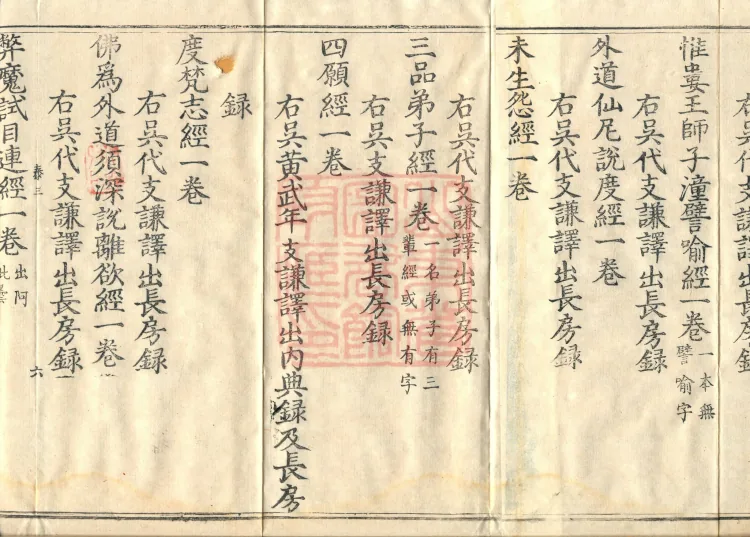 右吳代支謙譯出長房録
惟婁王師子湩譬喻經一卷一本無譬喻字
右吳代支謙譯出長房録
外道仙尼說度經一卷
右吳代支謙譯出長房録
未生怨經一卷
右吳代支謙譯出長房録
三品弟子經一卷一名弟子有三輩經或無有字
右吳支謙譯出長房録
四願經一卷
右吳黃武年支謙譯出內典録及長房
録
度梵志經一卷
右吳代支謙譯出長房録
佛為外道須深說離欲經一卷
右吳代支謙譯出長房録
泰三 六
弊魔試目連經一卷出阿